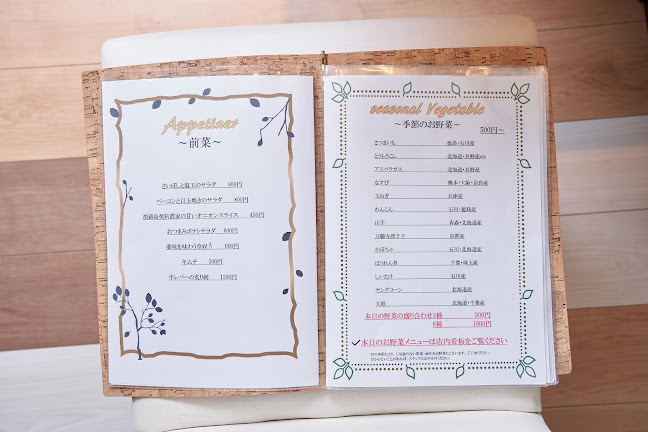 Appetizer
～前菜～
さいぼしと温玉のサラダ 800円
ベーコンと目玉焼きのサラダ 800円
淡路島契約農家の甘いオニオンスライス 450円
おつまみポテトサラダ 600円
薬味を味わう冷奴 600円
キムチ 500円
牛レバーの炙り刺 1200円
seasonal Vegetable
～季節のお野菜～
500円～
さつまいも 徳島・石川産
とうもろこし 北海道・長野産
アスパラガス 北海道・長野産
なすび 熊本・大阪・奈良産
玉ねぎ 兵庫産
れんこん 石川・徳島産
山芋 青森・北海道産
万願寺唐辛子 京都産
かぼちゃ 石川・北海道産
ほうれん草 千葉・埼玉産
しいたけ 石川産
ヤングコーン 北海道産
大根 北海道・千葉産
本日の野菜の盛り合わせ3種 900円
6種 1600円
本日のお野菜メニューは店内看板をご覧ください